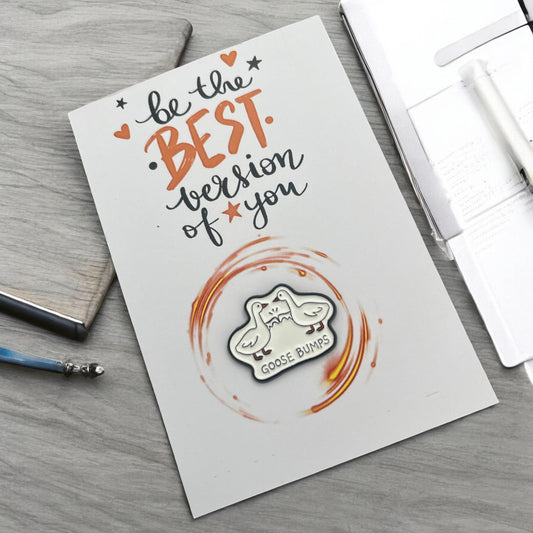 be the
BEST
version
of you
GOOSE BUMPS